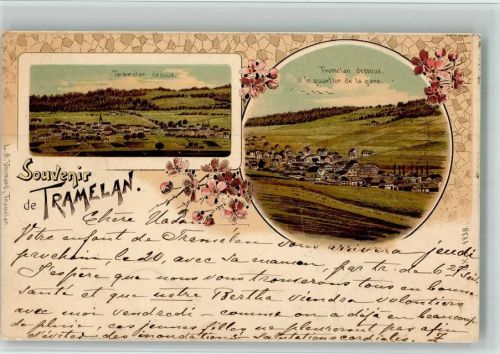 Tramelan dessus.
Tramelan dessous
et le quartier de la gare.
Souvenir
de TRAMELAN.
Chère
Votre enfant de Tramelan vous arrivera jeudi
prochain, le 20, avec sa maman, par tr. de 6 soir
J'espère que nous vous trouverons tous en bonne
santé et que notre Bertha viendra volontiers
avec moi vendredi – comme on a déjà en beaucoup
de pluie, ces jeunes filles ne pleureront pas afin
d'éviter des inondations – Salutations cordiales.